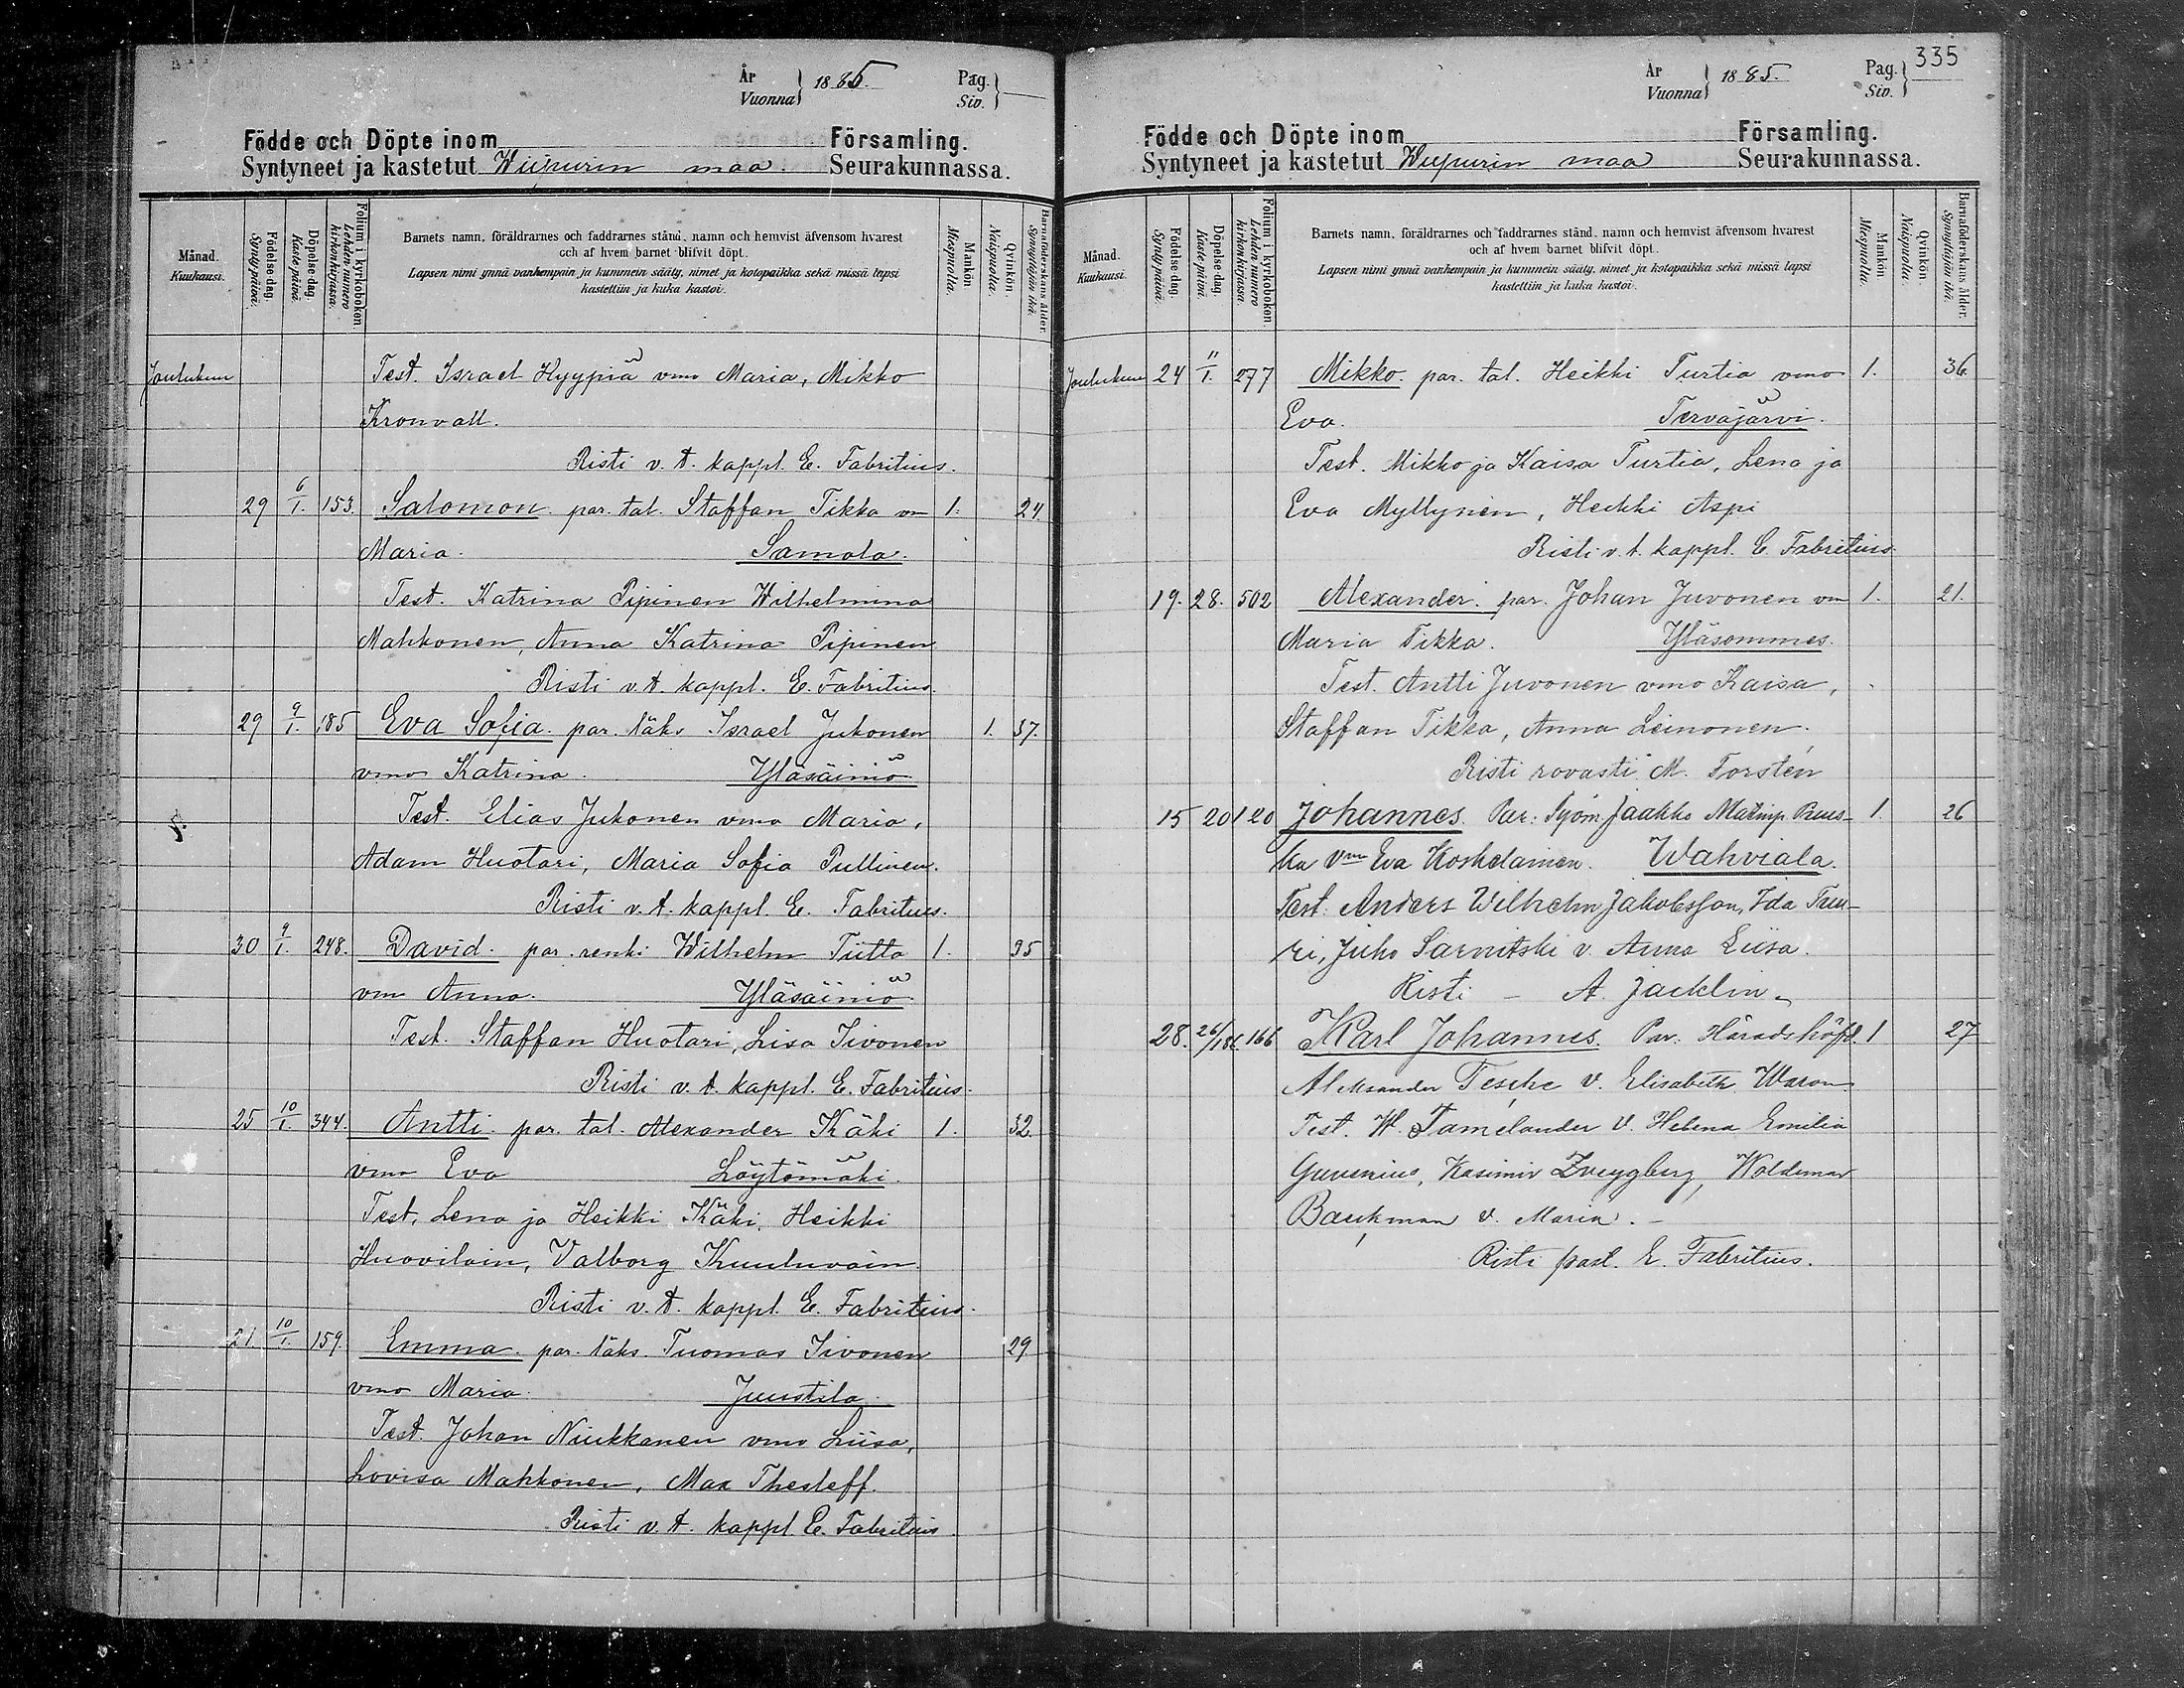 År
Vuonna } 1885. Pag.
Siv. } —
Födde och Döpte inom Församling.
Syntyneet ja kastetut Wiipurin maa. Seurakunnassa.
Månad. Kuukausi.
Födelse-dag. Synty-päivä.
Döpelse-dag. Kaste-päivä.
Folium i kyrkoboken. Lehden numero kirkonkirjassa.
Barnets namn, föräldrarnes och faddrarnes stånd, namn och hemvist äfvensom hvarest
och af hvem barnet blifvit döpt.
Lapsen nimi ynnä vanhempain ja kummein sääty, nimet ja kotopaikka sekä missä lapsi
kastettiin ja kuka kastoi.
Mankön. Miespuolia.
Qvinkön. Naispuolia.
Barnaföderskans ålder. Synnyttäjän ikä.
Joulukuu Test. Israel Hyypiä vmo Maria, Mikko
Kronvall.
Risti v. t. kappl. E. Fabritius.
29 6/1. 153. Salomon. par. tal. Staffan Tikka vm 1. 24.
Maria. Samola.
Test. Katrina Pipinen Wilhelmina
Mahkonen, Anna Katrina Pipinen
Risti v. t. kappl. E. Fabritius.
29 9/1. 185 Eva Sofia. par. täks Israel Jukonen 1. 37.
vmo Katrina. Yläsäiniö
Test. Elias Jukonen vmo Maria,
Adam Huotari, Maria Sofia Pullinen.
Risti v. t. kappl. E. Fabritius.
30 9/1. 248. David. par. renki Wilhelm Tiitta 1. 35
vm Anna. Yläsäiniö
Test. Staffan Huotari, Lisa Iivonen
Risti v. t. kappl. E. Fabritius.
25 10/1. 344. Antti. par. tal. Alexander Käki 1. 32.
vmo Eva Löytömäki.
Test. Lena ja Heikki Käki, Heikki
Huovilain, Valborg Kuuluvain.
Risti v. t. kappl. E. Fabritius.
21. 10/1. 159. Emma. par. täks. Tuomas Iivonen 29
vmo Maria. Juustila
Test. Johan Niukkanen vmo Liisa,
Lovisa Mahkonen, Max Thesleff.
Risti v. t. kappl E. Fabritius.
335
År
Vuonna } 1885. Pag.
Siv. }
Födde och Döpte inom Församling.
Syntyneet ja kastetut Wiipurin maa Seurakunnassa.
Månad. Kuukausi.
Födelse-dag. Synty-päivä.
Döpelse-dag. Kaste-päivä.
Folium i kyrkoboken. Lehden numero kirkonkirjassa.
Barnets namn, föräldrarnes och faddrarnes stånd, namn och hemvist äfvensom hvarest
och af hvem barnet blifvit döpt.
Lapsen nimi ynnä vanhempain ja kummein sääty, nimet ja kotopaikka sekä missä lapsi
kastettiin ja kuka kastoi.
Mankön. Miespuolia.
Qvinkön. Naispuolia.
Barnaföderskans ålder. Synnyttäjän ikä.
Joulukuu 24 11/1. 277 Mikko. par. tal. Heikki Turtia vmo 1. 36
Eva. Tervajärvi.
Test. Mikko ja Kaisa Turtia, Lena ja
Eva Myllynen, Heikki Aspi
Risti v. t. kappl. E. Fabritius.
19. 28. 502 Alexander. par. Johan Juvonen vm 1. 21.
Maria Tikka. Yläsommes.
Test. Antti Juvonen vmo Kaisa,
Staffan Tikka, Anna Leinonen.
Risti rovasti M. Forstén
15 20 120 Johannes. Par: työm. Jaakko Matinp. Pruus- 1. 26
ka vm Eva Koskelainen. Wahviala.
Test. Anders Wilhelm Jakobsson, Ida Tuu-
ri, Juho Sarnitski v. Anna Liisa.
Risti – A. Jacklin
28. 26/1 86. 166 Karl Johannes. Par. Häradshöfd. 1 27
Aleksander Tesche v. Elisabeth
Test. W. Tamelander v. Helena Emilia
Guvenius, Kasimir Zweygberg, Woldemar
Backman v. Maria. –
Risti past. E. Fabritius.